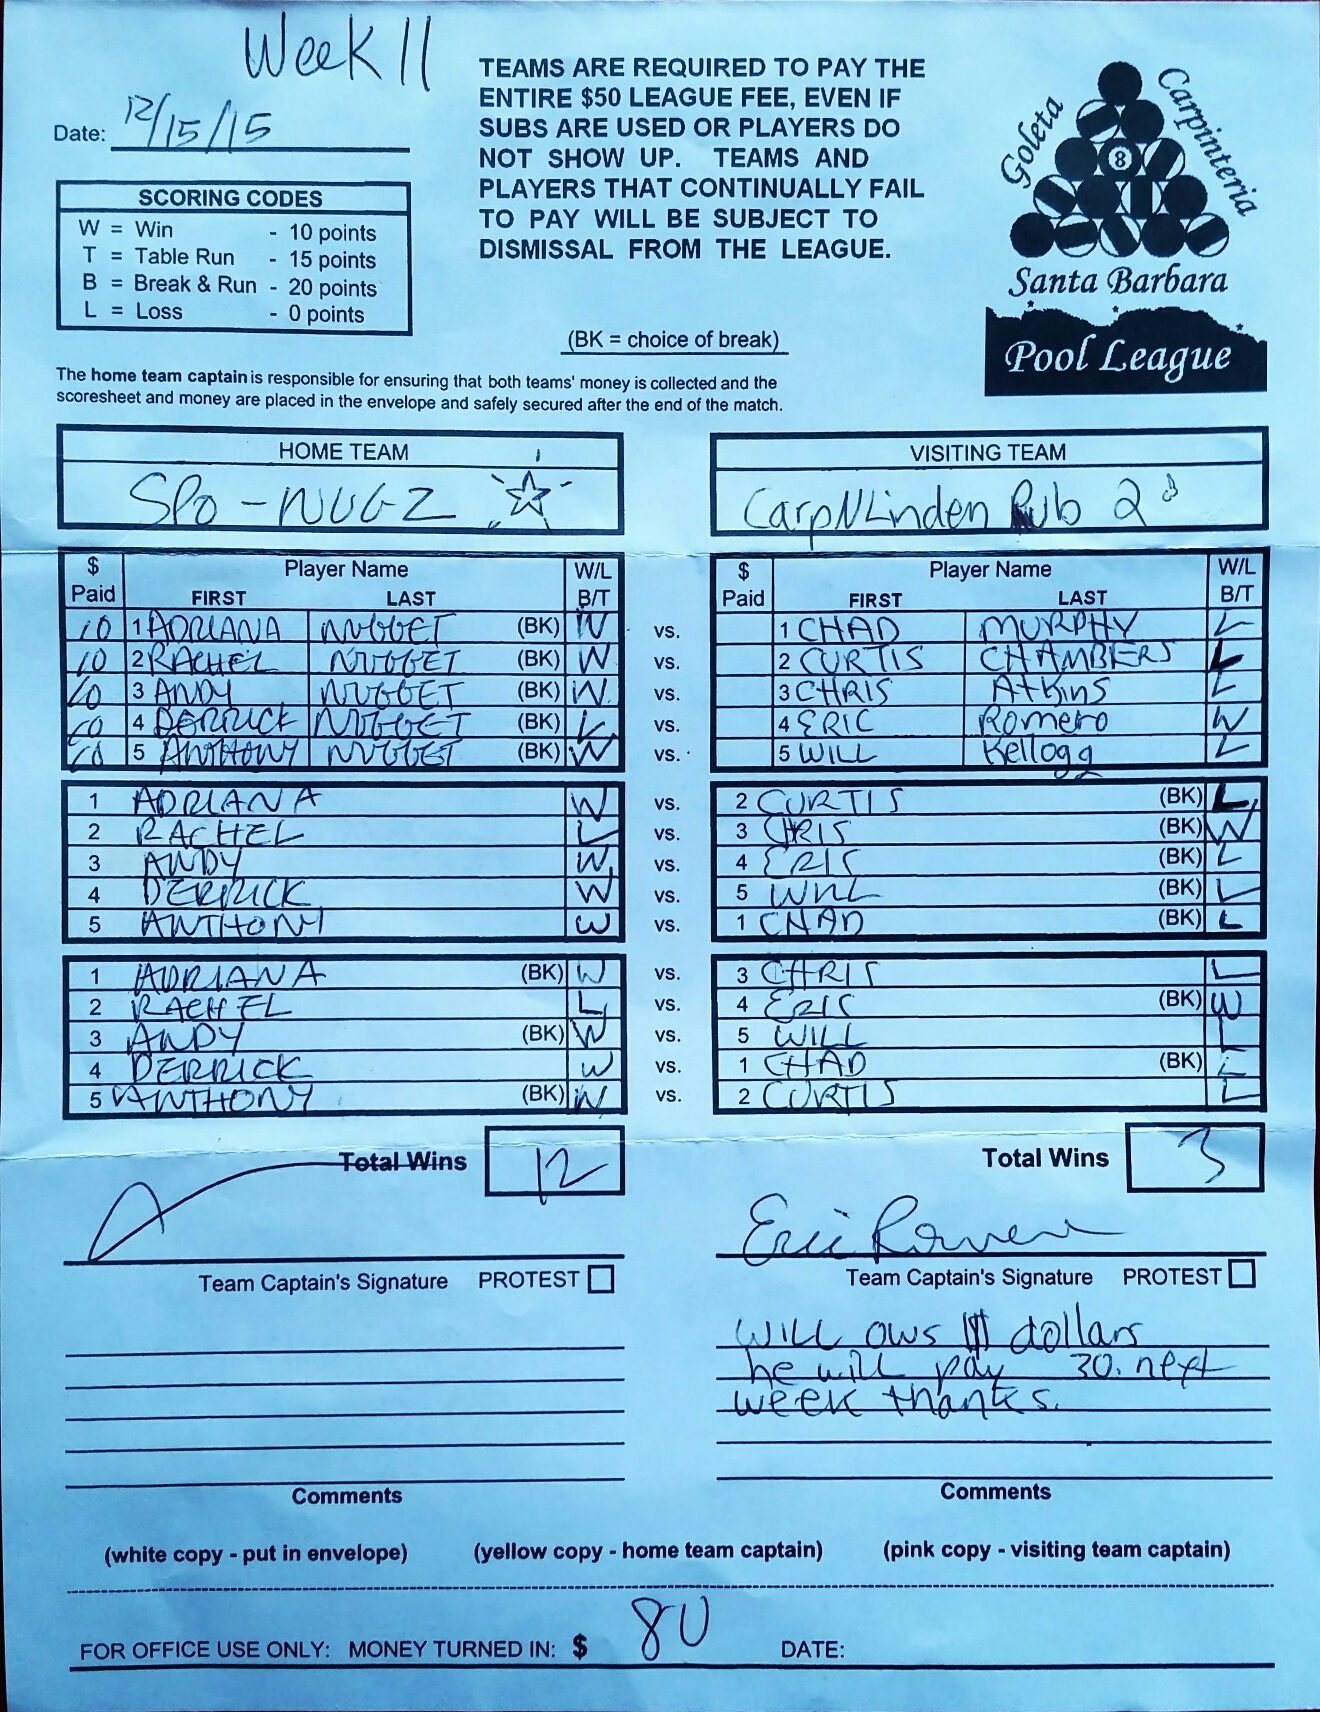 Week 11
Date: 12/15/15
TEAMS ARE REQUIRED TO PAY THE
ENTIRE $50 LEAGUE FEE, EVEN IF
SUBS ARE USED OR PLAYERS DO
NOT SHOW UP. TEAMS AND
PLAYERS THAT CONTINUALLY FAIL
TO PAY WILL BE SUBJECT TO
DISMISSAL FROM THE LEAGUE.
Goleta
Carpinteria
8
Santa Barbara
Pool League
SCORING CODES
W = Win - 10 points
T = Table Run - 15 points
B = Break & Run - 20 points
L = Loss - 0 points
(BK = choice of break)
The home team captain is responsible for ensuring that both teams' money is collected and the
scoresheet and money are placed in the envelope and safely secured after the end of the match.
HOME TEAM VISITING TEAM
SPO-NUGZ CarpNLinden Pub 2
$ Paid Player Name FIRST LAST W/L B/T $ Paid Player Name FIRST LAST W/L B/T
10 1 ADRIANA NUGGET (BK) W vs. 1 CHAD MURPHY L
10 2 RACHEL NUGGET (BK) W vs. 2 CURTIS CHAMBERS L
10 3 ANDY NUGGET (BK) W vs. 3 CHRIS Atkins L
10 4 DERRICK NUGGET (BK) L vs. 4 ERIC Romero W
10 5 ANTHONY NUGGET (BK) W vs. 5 WILL Kellogg L
1 ADRIANA W vs. 2 CURTIS (BK) L
2 RACHEL L vs. 3 CHRIS (BK) W
3 ANDY W vs. 4 ERIC (BK) L
4 DERRICK W vs. 5 WILL (BK) L
5 ANTHONY W vs. 1 CHAD (BK) L
1 ADRIANA (BK) W vs. 3 CHRIS L
2 RACHEL L vs. 4 ERIC (BK) W
3 ANDY (BK) W vs. 5 WILL L
4 DERRICK W vs. 1 CHAD (BK) L
5 ANTHONY (BK) W vs. 2 CURTIS L
Total Wins 12 Total Wins 3
Eric Romero
Team Captain's Signature PROTEST Team Captain's Signature PROTEST
WILL ows dollars
he will pay 30. next
week thanks.
Comments Comments
(white copy - put in envelope) (yellow copy - home team captain) (pink copy - visiting team captain)
FOR OFFICE USE ONLY: MONEY TURNED IN: $ 80 DATE: